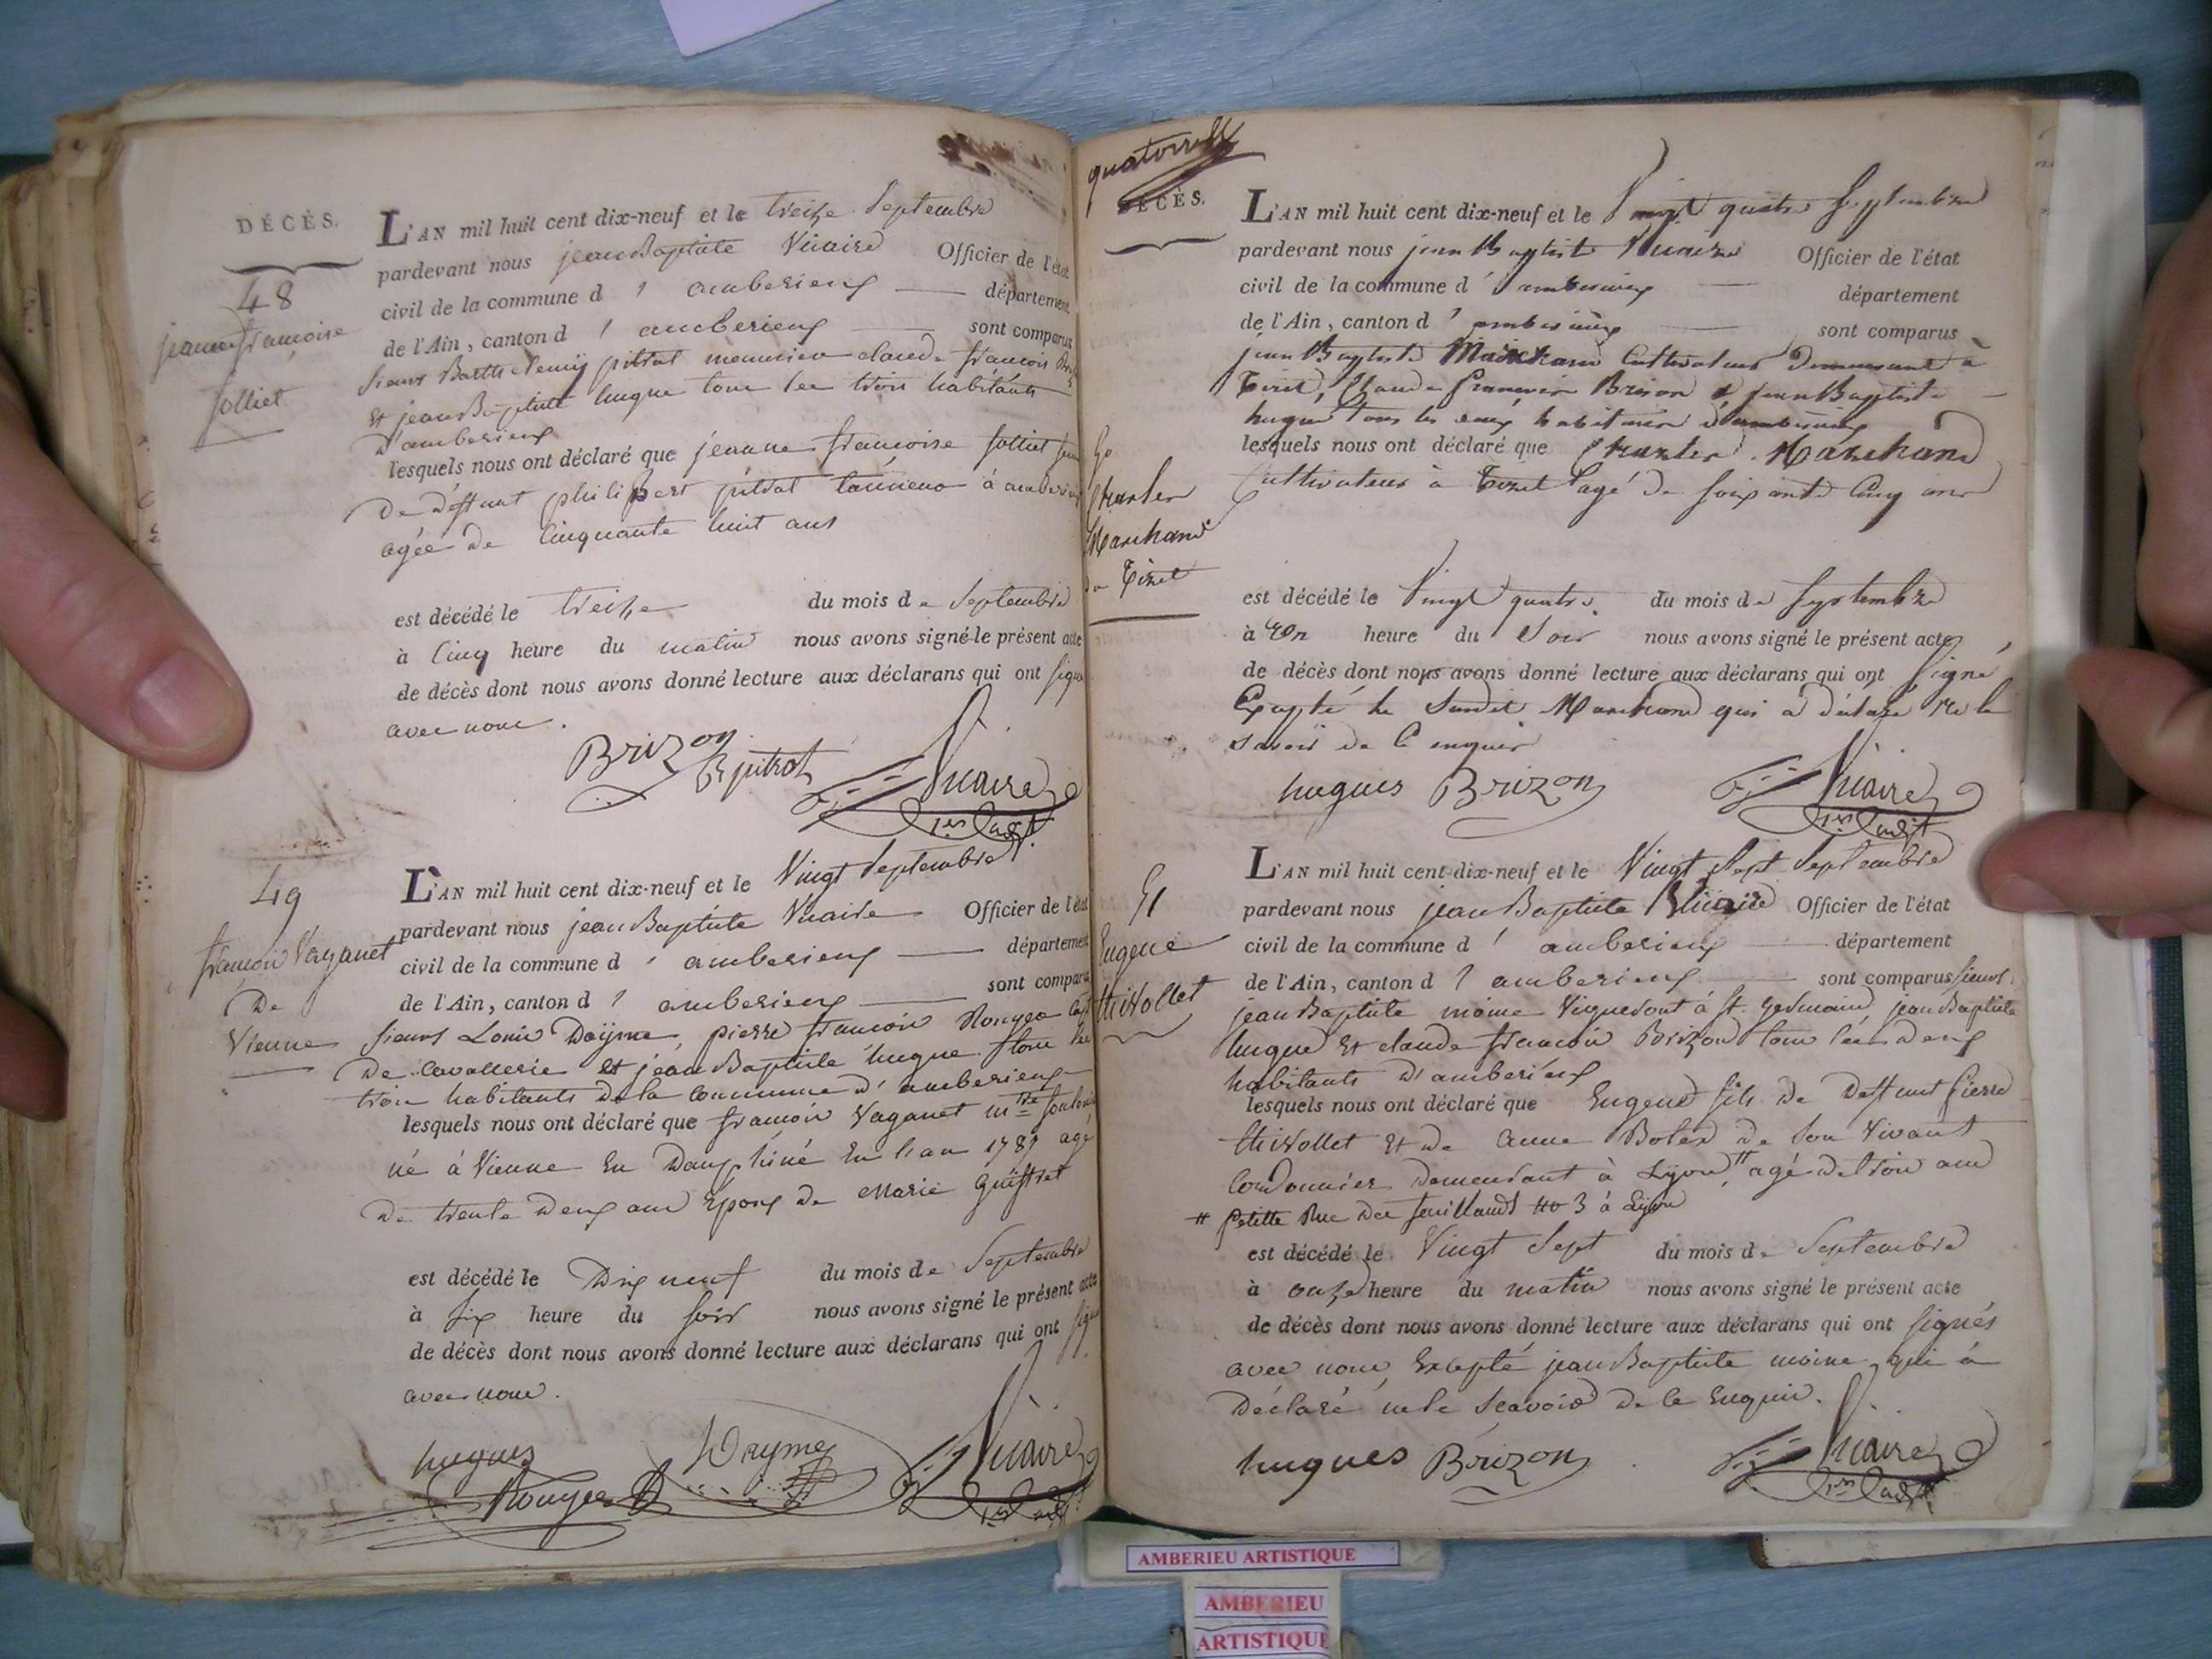 DÉCÈS.
48
jeanne françoise
folliet
L'AN mil huit cent dix-neuf et le treize Septembre
pardevant nous jean Baptiste Vicaire Officier de l'état
civil de la commune d' amberieux département
de l'Ain, canton d' amberieux sont comparus
Sieurs Barthelemy pitrat claude françois
Et jean Baptiste hugue tous les trois habitants
D'amberieux
lesquels nous ont déclaré que jeanne françoise folliet
De déffunt philibert pitrat à
agée de Cinquante huit ans
est décédé le treize du mois de Septembre
à Cinq heure du matin nous avons signé le présent acte
de décès dont nous avons donné lecture aux déclarans qui ont signé
avec nous.
Brizon
B pitrat
Vicaire
1er adjt
49
françois Vaganet
De
Vienne
L'AN mil huit cent dix-neuf et le Vingt Septembre
pardevant nous jean Baptiste Vicaire Officier de l'état
civil de la commune d' amberieux département
de l'Ain, canton d' amberieux sont comparus
Sieurs Louis Dayme, pierre françois Rouyer
De Cavallerie et jean Baptiste hugue tous les
trois habitants de la Commune d'amberieux
lesquels nous ont déclaré que françois Vaganet
né à Vienne En Dauphiné En l'an 1787 agé
De trente Deux ans Epoux de Marie Guiffret
est décédé le Dix neuf du mois de Septembre
à Six heure du soir nous avons signé le présent acte
de décès dont nous avons donné lecture aux déclarans qui ont signé
avec nous.
hugues
Dayme
Rouyer
Vicaire
1er adjt
quatorze
DÉCÈS.
50
Charles
Marchand
de Tiret
L'AN mil huit cent dix-neuf et le Vingt quatre Septembre
pardevant nous jean Baptiste Vicaire Officier de l'état
civil de la commune d' amberieux département
de l'Ain, canton d' amberieux sont comparus
jean Baptiste Marchand Cultivateur Demeurant à
Tiret, Claude françois Brison & jean Baptiste
hugue tous les deux habitans d'amberieux
lesquels nous ont déclaré que Charles Marchand
Cultivateur à Tiret agé de soixante Cinq ans
est décédé le Vingt quatre. du mois de Septembre
à Un heure du Soir nous avons signé le présent acte
de décès dont nous avons donné lecture aux déclarans qui ont signé
Excepté le Susdit Marchand qui a déclaré ne le
savoir de ce enquis
hugues Brizon
Vicaire
1er adjt
51
Eugene
thivollet
L'AN mil huit cent dix-neuf et le Vingt Sept Septembre
pardevant nous jean Baptiste Vicaire Officier de l'état
civil de la commune d' amberieux département
de l'Ain, canton d' amberieux sont comparus sieurs
jean Baptiste moine Vigneront à St. germain, jean Baptiste
hugue Et claude françois Brizon tous les deux
habitants d'amberieux
lesquels nous ont déclaré que Eugene fils de Deffunt Pierre
thivollet Et de Anne de Son Vivant
Cordonnier Demeurant à Lyon # agé de trois ans
# petitte Rue Des feuillands No 3 à Lyon
est décédé le Vingt Sept du mois de Septembre
à onze heure du matin nous avons signé le présent acte
de décès dont nous avons donné lecture aux déclarans qui ont signés
avec nous Excepté jean Baptiste moine qui à
Déclaré ne le Scavoir de ce Enquis.
hugues Brizon
Vicaire
1er adjt
AMBERIEU ARTISTIQUE
AMBERIEU
ARTISTIQUE